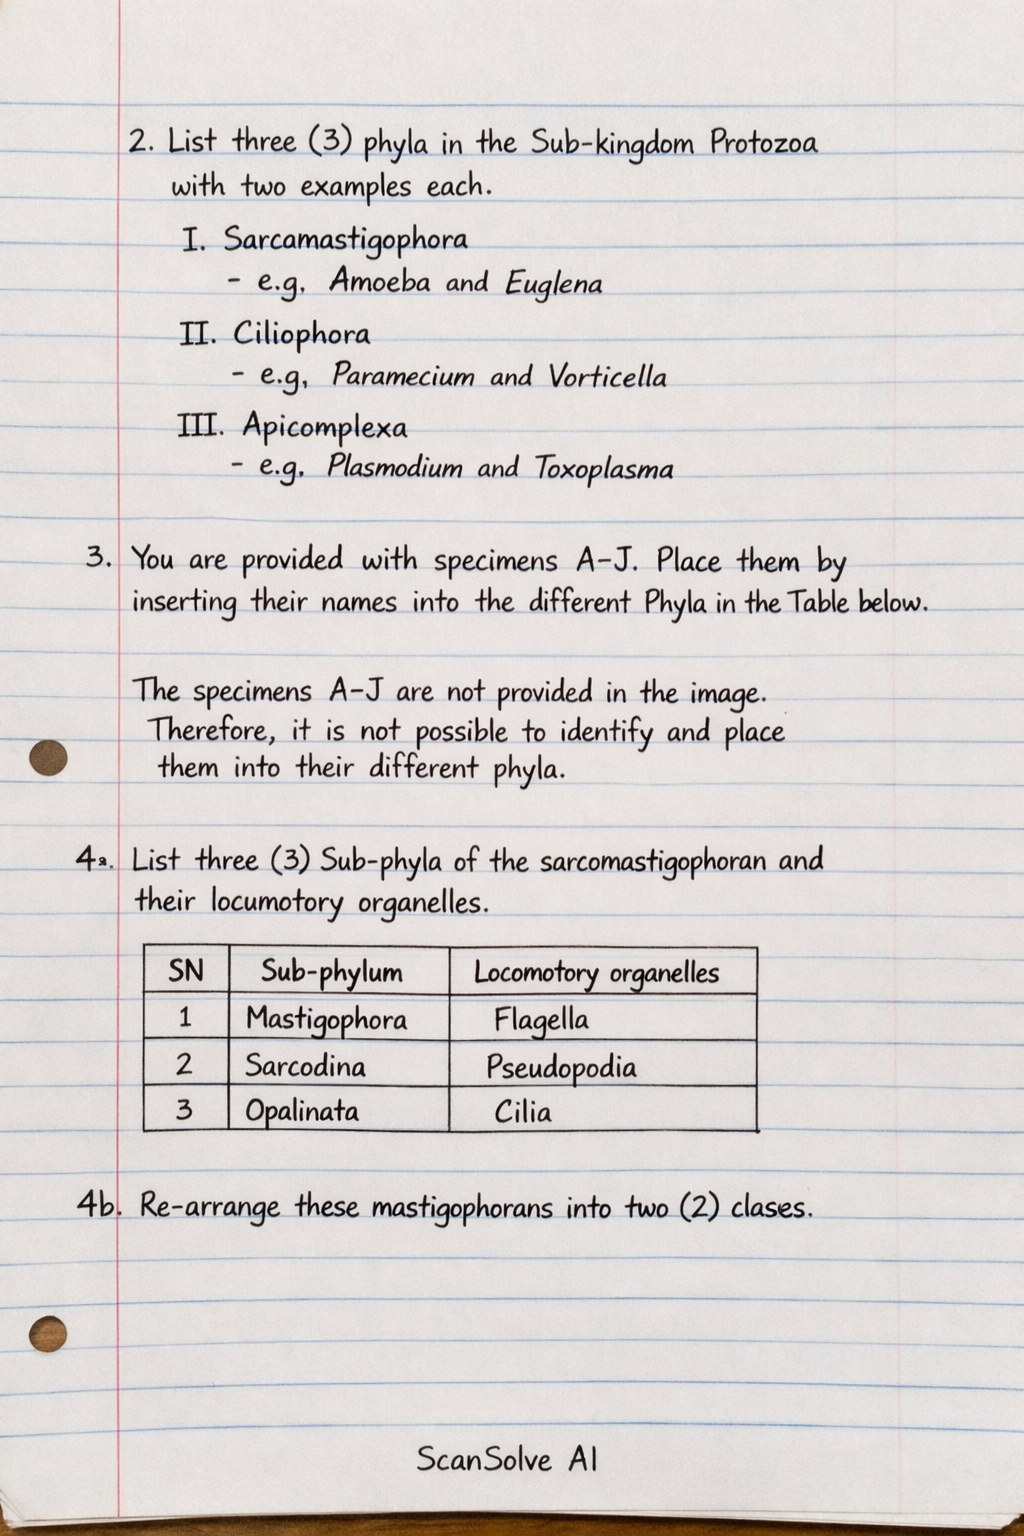 2. List three (3) phyla in the Sub-kingdom Protozoa
with two examples each.
I. Sarcamastigophora
- e.g. Amoeba and Euglena
II. Ciliophora
- e.g, Paramecium and Vorticella
III. Apicomplexa
- e.g. Plasmodium and Toxoplasma
3. You are provided with specimens A-J. Place them by
inserting their names into the different Phyla in the Table below.
The specimens A-J are not provided in the image.
Therefore, it is not possible to identify and place
them into their different phyla.
4a. List three (3) Sub-phyla of the sarcomastigophoran and
their locumotory organelles.
SN Sub-phylum Locomotory organelles
1 Mastigophora Flagella
2 Sarcodina Pseudopodia
3 Opalinata Cilia
4b. Re-arrange these mastigophorans into two (2) clases.
ScanSolve AI